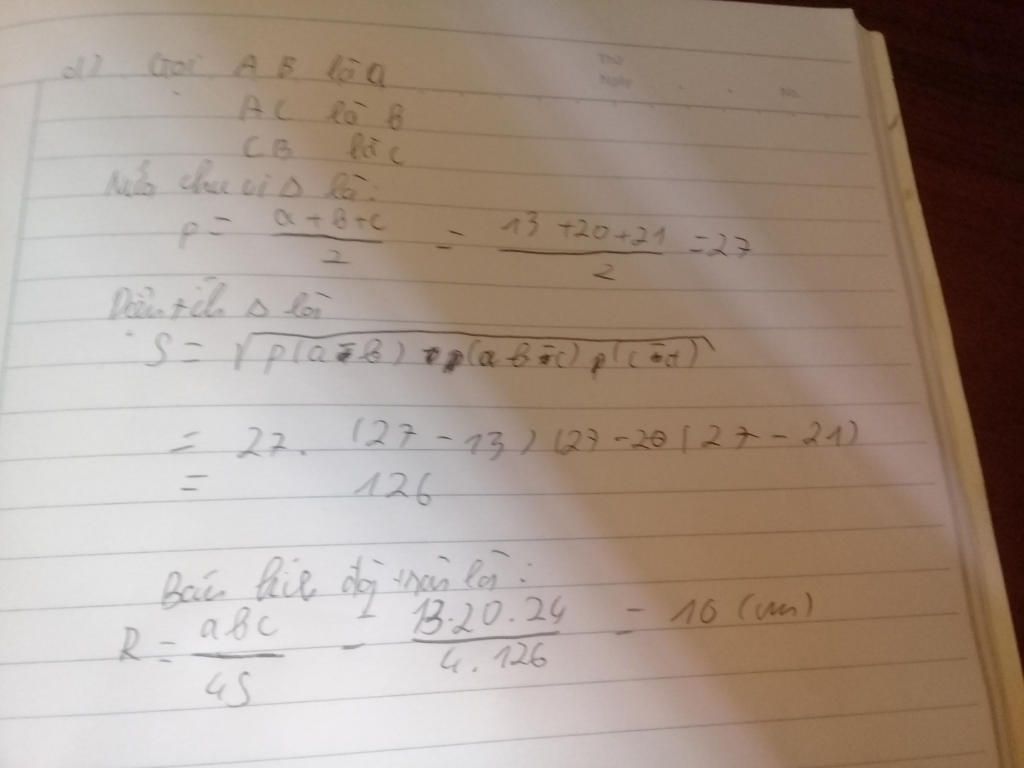 Thứ
Ngày No.
d) Gọi AB là a
AC là b
CB là c
Nửa chu vi Δ là:
p = \frac{a+b+c}{2} = \frac{13+20+21}{2} = 27
Diện tích Δ là
S = √p(a-b) p(a b-c) p(c-a)
= 27. (27-13) (27-20 (27-21)
= 126
là:
R = \frac{abc}{4S} = \frac{13.20.24}{4.126} = 10 (cm)